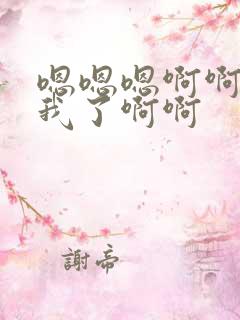 嗯嗯嗯啊啊
我了啊啊
謝帝